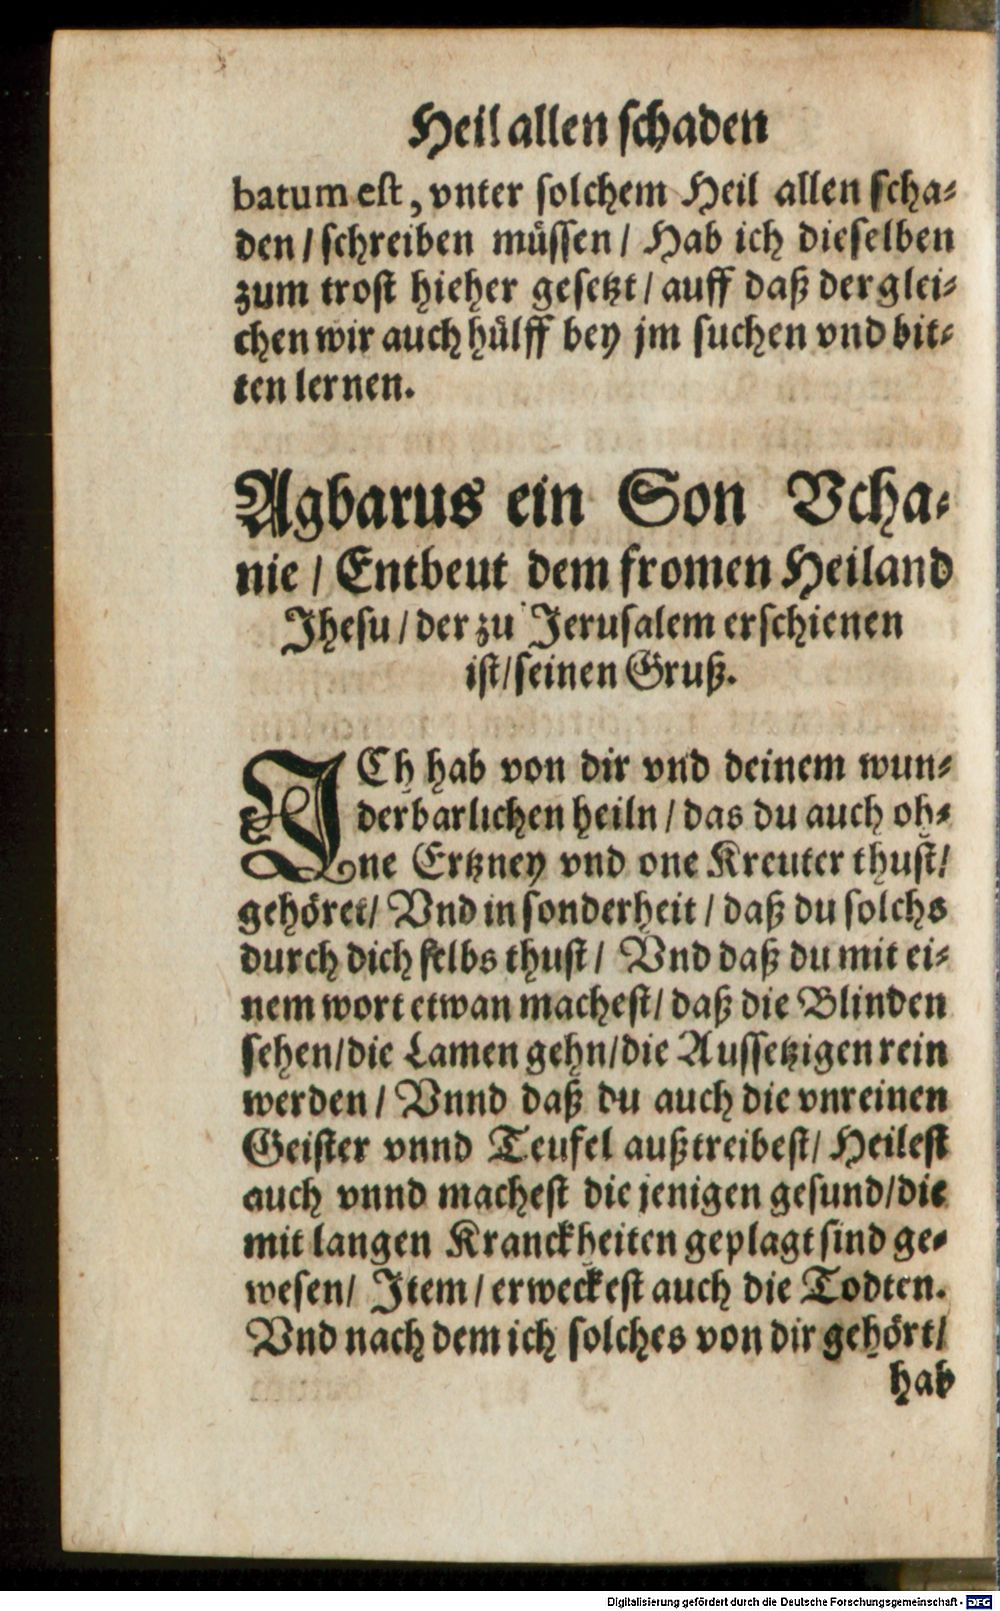 Heil allen schaden
batum est, vnter solchem Heil allen scha-
den / schreiben müssen / Hab ich dieselben
zum trost hieher gesetzt / auff daß der glei-
chen wir auch hülff bey jm suchen vnd bit-
ten lernen.
Agbarus ein Son Vcha-
nie / Entbeut dem fromen Heiland
Jhesu / der zu Jerusalem erschienen
ist / seinen Gruß.
ICh hab von dir vnd deinem wun-
derbarlichen heiln / das du auch oh-
ne Ertzney vnd one Kreuter thust /
gehöret / Vnd in sonderheit / daß du solchs
durch dich selbs thust / Vnd daß du mit ei-
nem wort etwan machest / daß die Blinden
sehen / die Lamen gehn / die Aussetzigen rein
werden / Vnnd daß du auch die vnreinen
Geister vnnd Teufel außtreibest / Heilest
auch vnnd machest die jenigen gesund / die
mit langen Kranckheiten geplagt sind ge-
wesen / Item / erweckest auch die Todten.
Vnd nach dem ich solches von dir gehört /
hab
Digitalisierung gefördert durch die Deutsche Forschungsgemeinschaft - DFG